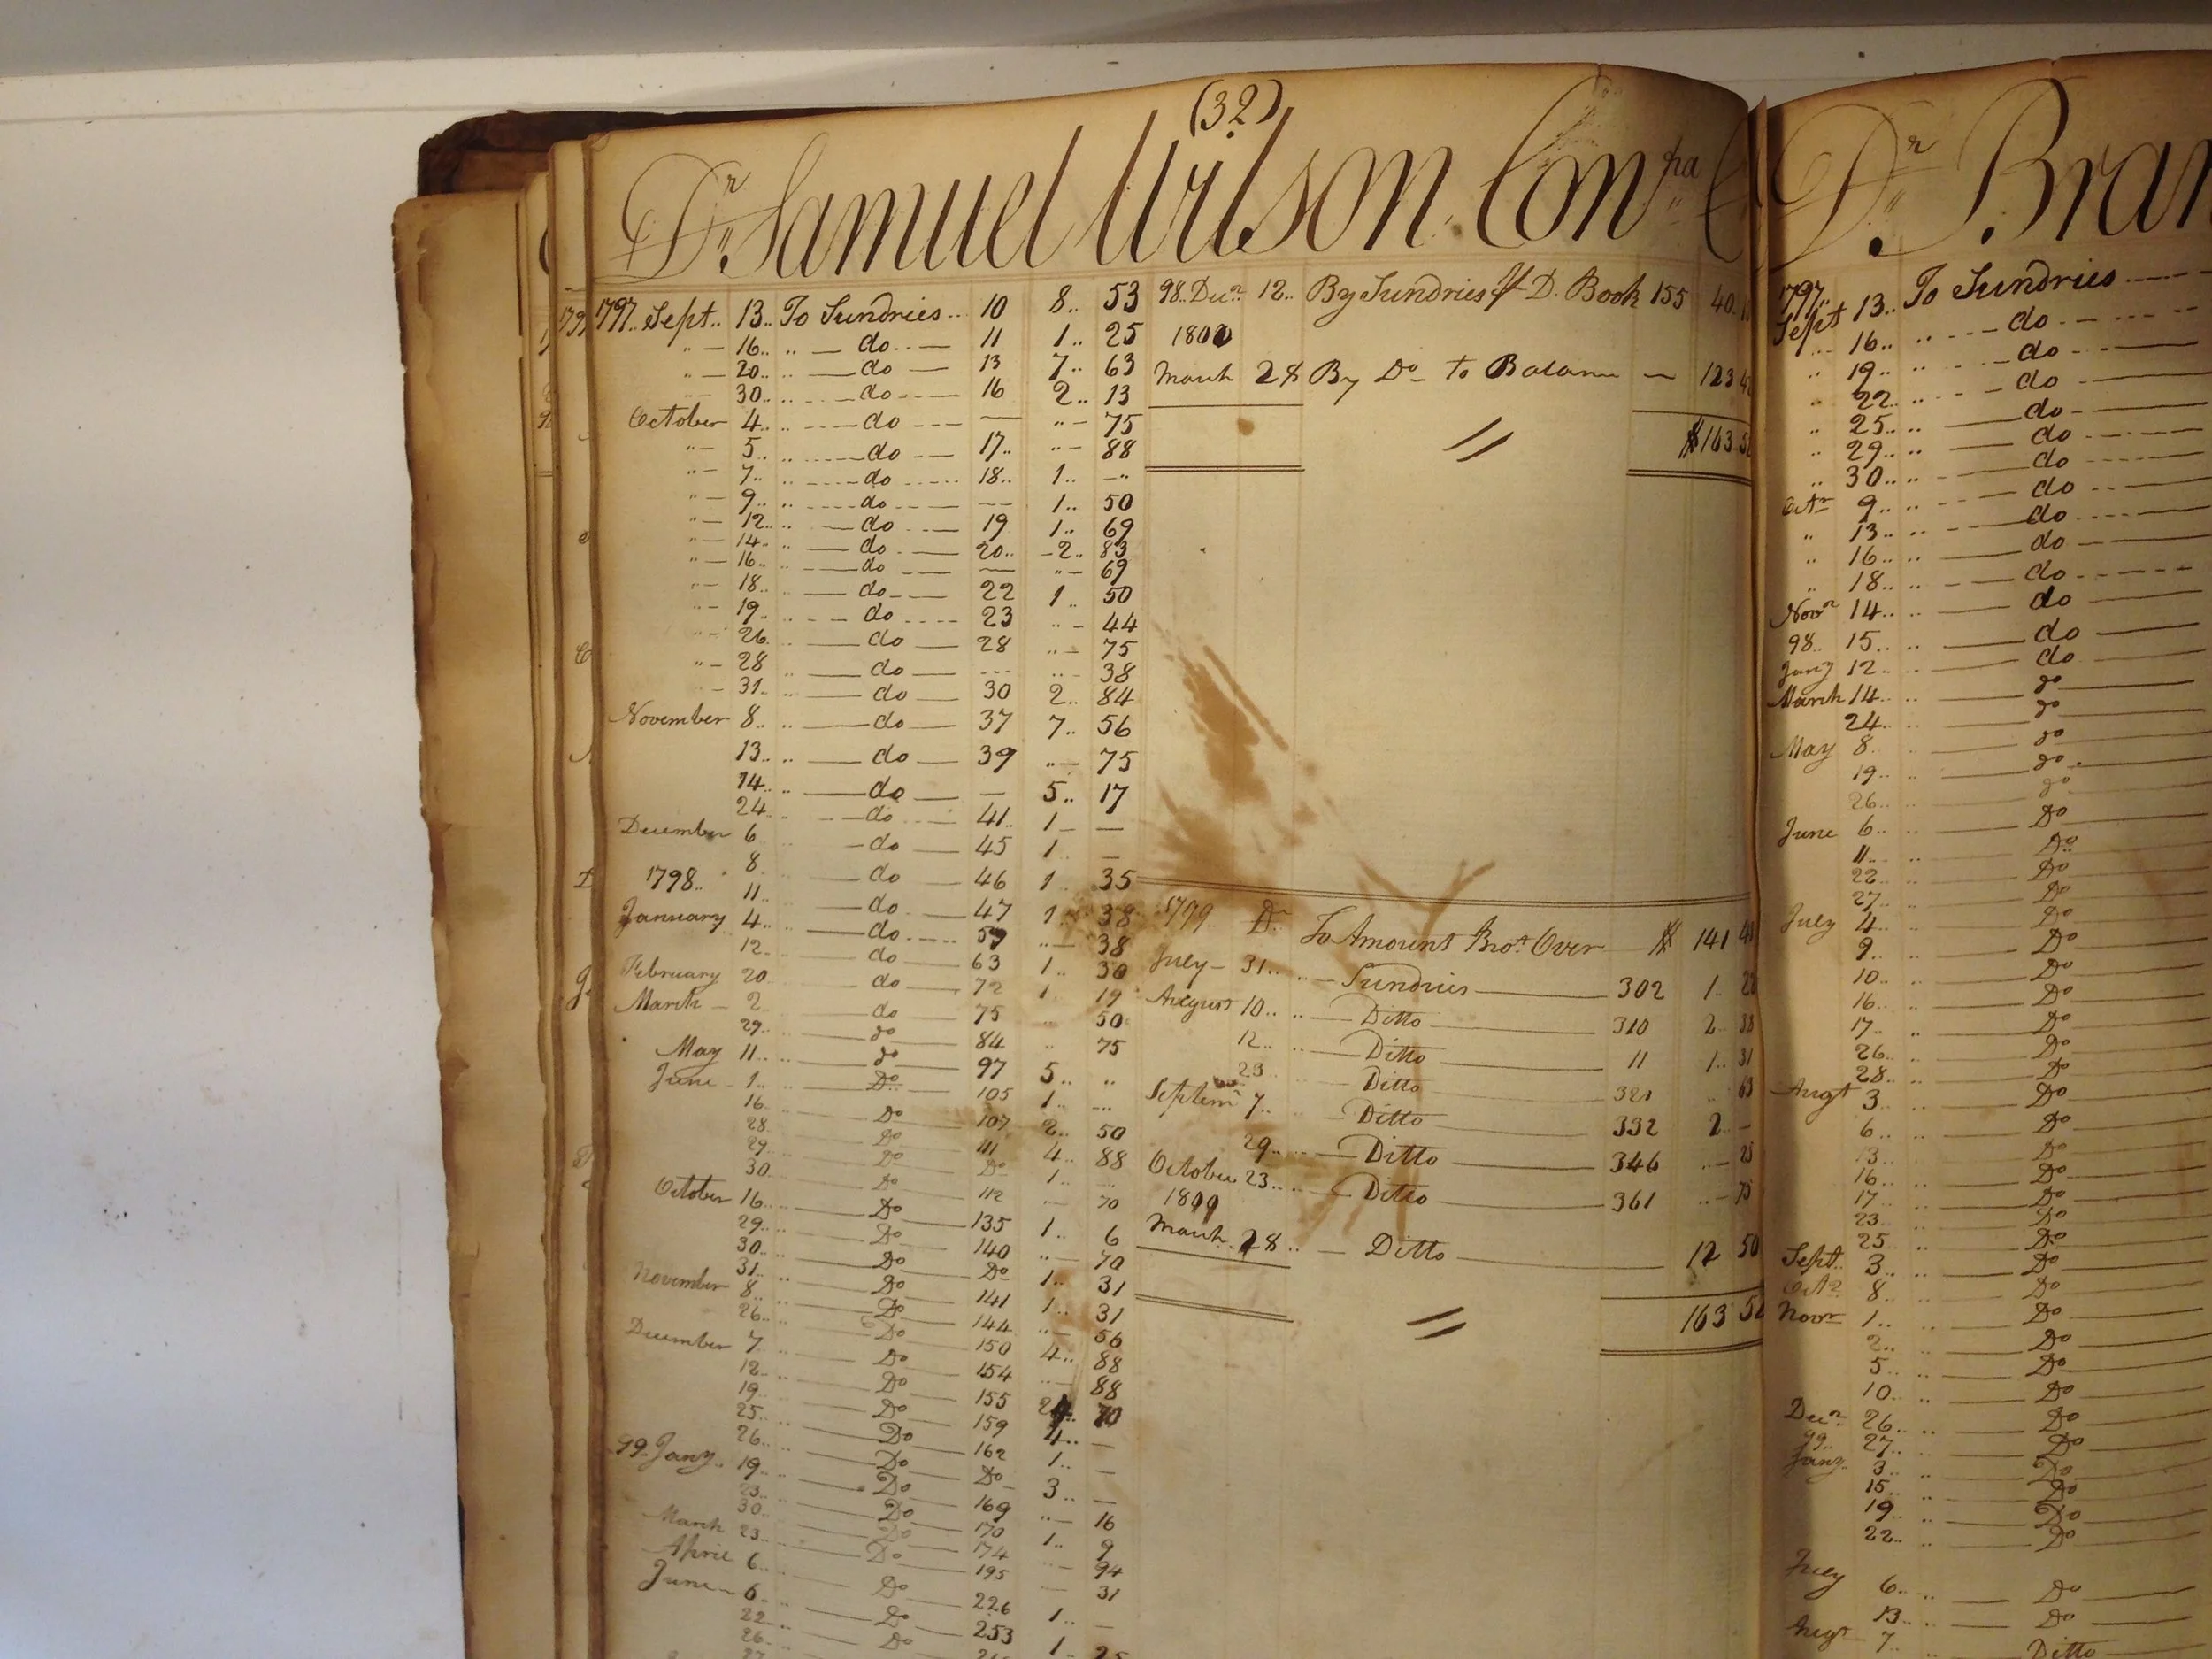 (32)
Dr. Samuel Wilson Compa
1797.. Sept.. 13.. To Sundries.. 10 8.. 53
" — 16.. " — do — 11 1.. 25
" — 20.. " — do — 13 7.. 63
30.. " — do — 16 2.. 13
October 4.. " — do — — " — 75
" — 5.. " — do — 17.. " — 88
" — 7.. " — do — 18.. 1.. — "
" — 9.. " — do — — 1.. 50
" — 12.. " — do — 19 1.. 69
" — 14.. " — do — 20.. 2.. 83
" — 16.. " — do — — " — 69
" — 18.. " — do — 22 1.. 50
" — 19.. " — do — 23 " — 44
" — 26.. " — do — 28 " — 75
" — 28 " — do — — " — 38
" — 31.. " — do — 30 2.. 84
November 8.. " — do — 37 7.. 56
13.. " — do — 39 " — 75
14.. " — do — — 5.. 17
24.. — do — 41.. 1 — —
December 6 — do — 45 1.. —
8.. — do — 46 1.. 35
1798.. 11.. — do — 47 1.. 38
January 4.. — do — " — 38
12.. — do — 63 1.. 30
February 20 — do — 72 1.. 19
March — 2 — do — 75 " 50
29.. — do — 84 " 75
May 11.. — do — 97 5.. "
June — 1.. — Do — 105 1.. —
16.. — Do — 107 2.. 50
28.. — Do — 111 4.. 88
29.. — Do — Do 1..
30.. — Do — 112 — 70
October 16.. — Do — 135 1.. 6
29.. — Do — 140 " — 70
30.. — Do — Do 1.. 31
31.. — Do — 141 1.. 31
November 8.. — Do — 144 " — 56
26.. — Do — 150 4.. 88
December 7.. — Do — 154 " — 88
12.. — Do — 155 70
19.. — Do — 159 4.. —
25.. — Do — 162 1.. —
26.. — Do — Do 3.. —
99.. Jany.. 19.. — Do — 169 " — 16
23.. — Do — 170 1.. 9
30.. — Do — 174 — 94
March 23.. — Do — 195 — 31
April 6.. — Do — 226 1.. —
June — 6.. — Do — 253 1.. 25
22.. — Do
26..
27..
98.. Decr. 12.. By Sundries D. Book 155 40
1800
March 28 By Do To Balance — 123
$163
1799 Dr To Amount Brot. Over $ 141
July — 31.. — Sundries — 302 1..
August 10.. — Ditto — 310 2 38
12.. — Ditto — 11 1.. 31
23.. — Ditto — 321 .. 63
Septemr 7.. — Ditto — 332 2 —
29.. — Ditto — 346 .. — 25
October 23.. — Ditto — 361 .. — 75
1800
March 28.. — Ditto — 12 50
163
Dr. Bran
1797..
Sept 13.. To Sundries
" 16.. " — do
" 19.. " — do
" 22.. " — do
" 25.. " — do
" 29.. " — do
" 30.. " — do
Octr 9.. " — do
" 13.. " — do
" 16.. " — do
" 18.. " — do
Novr 14.. " — do
98.. 15.. " — do
Jany 12.. " — do
March 14.. — do
24.. — do
May 8.. — do
19.. — do
26.. — do
June 6.. — Do
11.. — Do
22.. — Do
27.. — Do
July 4.. — Do
9.. — Do
10.. — Do
16.. — Do
17.. — Do
26.. — Do
28.. — Do
Augt 3.. — Do
6.. — Do
13.. — Do
16.. — Do
17.. — Do
23.. — Do
25.. — Do
Sept. 3.. — Do
Octr. 8.. — Do
Novr 1.. — Do
2.. — Do
5.. — Do
10.. — Do
Decr. 26.. — Do
99.. 27.. — Do
Jany. 3.. — Do
15.. — Do
19.. — Do
22.. — Do
July 6.. — Do
13.. — Do
Augt 7.. — Ditto